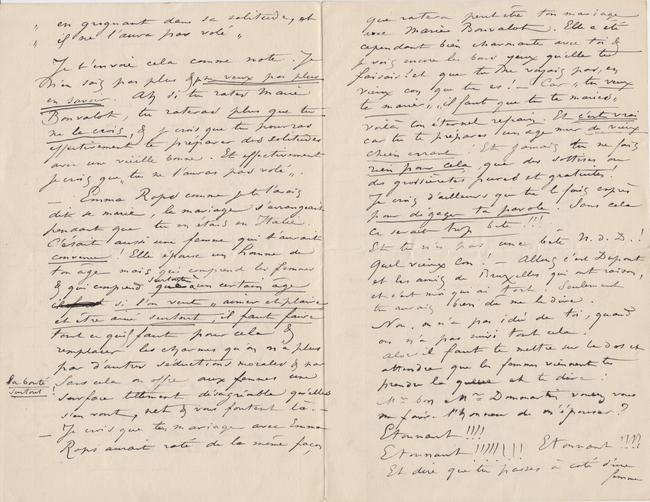 " en grignant dans sa solitude, et
" il ne l'aura pas volé "
Je t'envoie cela comme note. Je
n'en sais pas plus & ne veux pas plus
en savoir. Ah si tu rates Marie
Bonvalot, tu rateras plus que tu
ne le crois, & je crois que tu pourras
effectivement te préparer des solitudes
avec une vieille bonne. Et effectivement
je crois que "tu ne l'auras pas volé".
— Emma Rops comme je te l'avais
dit se marie, le mariage s'arrangeait
pendant que tu en étais en Italie.
C'était aussi une femme qui t'aurait
convenu ! Elle épouse un homme de
ton âge mais qui comprend les femmes
& qui comprend surtout qu'a un certain âge
si l'on veut "aimer et plaire
et être aimé surtout, il faut faire
tout ce qu'il faut pour cela &
remplacer les charmes qu'on n'a plus
par d'autres séductions morales &
la bonté surtout !
Sans cela on offre aux femmes une
surface tellement désagréable qu'elles
s'en vont, net & vous foutent là. —
— Je crois que ton mariage avec Emma
Rops aurait raté de la même façon
que ratera peut être ton mariage
avec Marie Bonvalot. Elle a été
cependant bien charmante avec toi &
je vois encore les bons yeux qu'elle te
faisait et que tu ne voyais pas, en
vieux con que tu es ! — Car "tu veux
te marier", "il faut que tu te maries"
voilà ton éternel refrain. Et c'est vrai
car tu te prépares un age mur de vieux
chien errant ! Et jamais tu ne fais
rien pour cela, que des sottises ou
des grossièretés pures et gratuites.
Je crois d'ailleurs que tu le fais exprès
pour dégager ta parole. Sans cela
ce serait trop bête !!!
Et tu n'es pas une bête N. d. D. !
Quel vieux con ! — Allons c'est Dupont
et les amis de Bruxelles qui ont raison,
et c'est moi qui ai tort. Seulement
tu aurais bien du me le dire.
Non, on n'a pas idée de toi, quand
on n'a pas suivi tout cela.
Alors il faut te mettre sur le dos et
attendre que les femmes viennent te
prendre la queue et te dire :
Mr bon Mr Dommartin voulez vous
me faire l'honneur de m'épouser ?
Etonnant !!!!
Etonnant !!!!!!!! Etonnant !!!!
Et dire que tu passes à coté d'une
femme